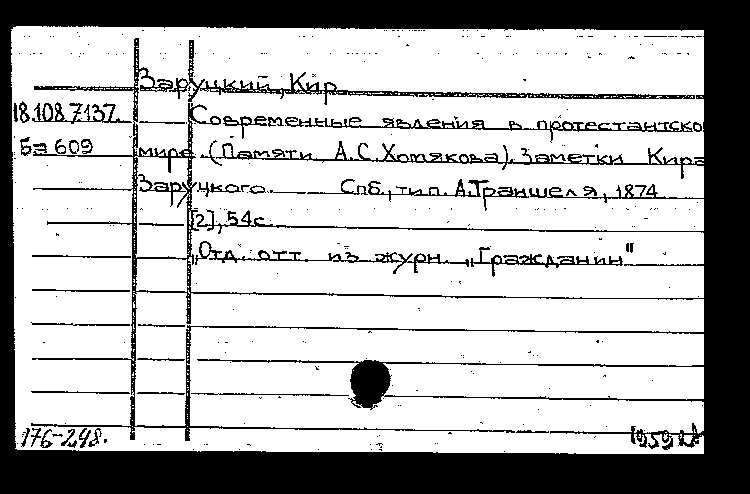 Заруцкий, Кир.
18.108.7.137. Современные явления в протестантско
Бэ 609 мире. (Памяти А.С.Хомякова). Заметки Кира
Заруцкого. Спб., тип. А.Траншеля, 1874
[2], 54с.
„Отд. отт. из журн. „Гражданин"
176-248.